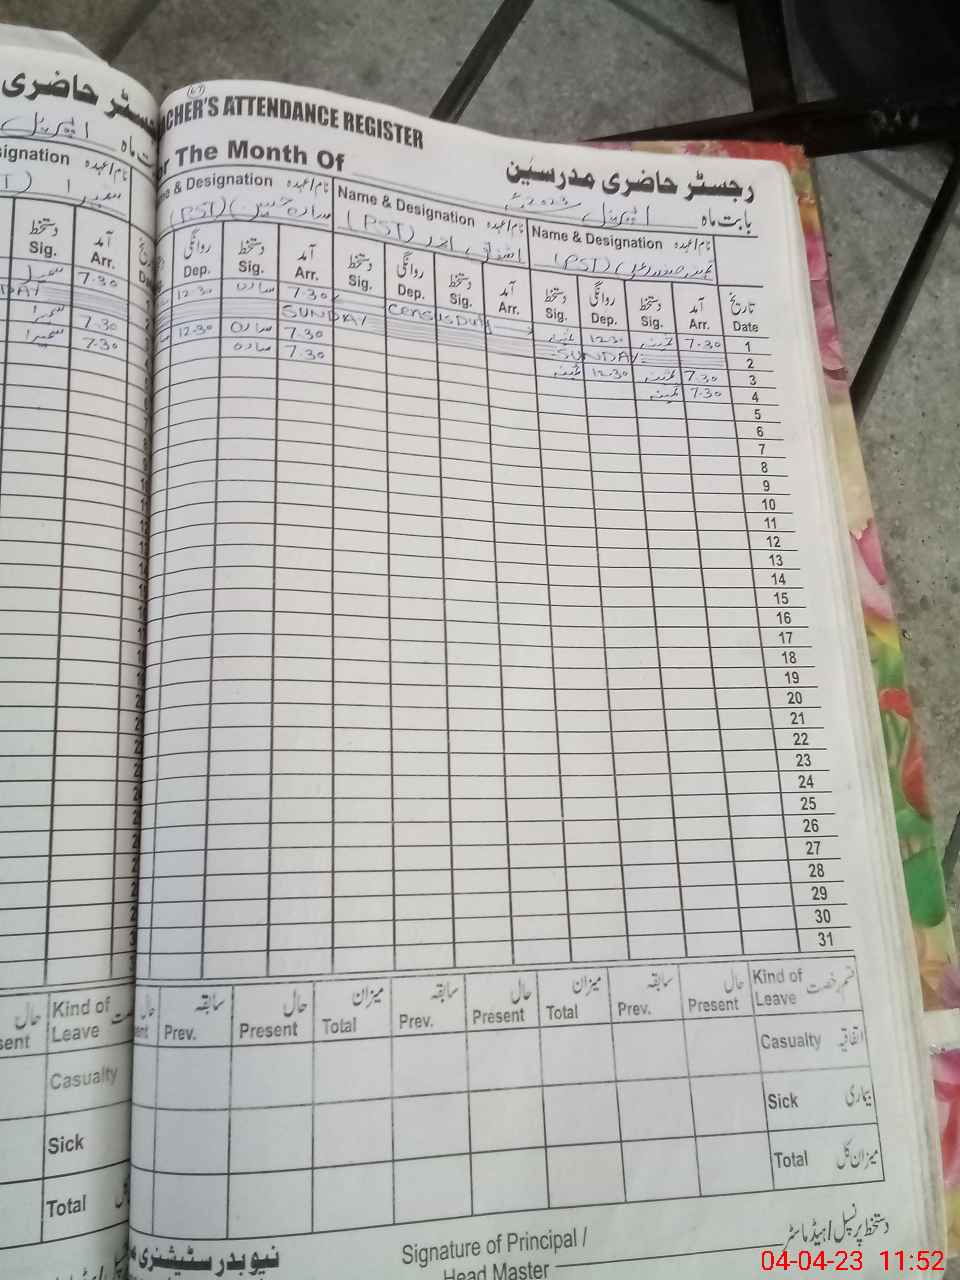 67
TEACHER'S ATTENDANCE REGISTER
رجسٹر حاضری مدرسین
For The Month Of
بابت ماہ اپریل 2023ء
Name & Designation نام/عہدہ
Name & Designation نام/عہدہ
Name & Designation نام/عہدہ
(PST)
(PST)
(PST)
روانگی دستخط آمد دستخط روانگی دستخط آمد دستخط روانگی دستخط آمد تاریخ
Dep. Sig. Arr. Sig. Dep. Sig. Arr. Sig. Dep. Sig. Arr. Date
12.30 7.30 Census Duty 12.30 7.30 1
SUNDAY SUNDAY 2
12.30 7.30 12.30 7.30 3
7.30 7.30 4
5
6
7
8
9
10
11
12
13
14
15
16
17
18
19
20
21
22
23
24
25
26
27
28
29
30
31
سابقہ حال میزان سابقہ حال میزان سابقہ حال قسم رخصت
Prev. Present Total Prev. Present Total Prev. Present Kind of Leave
Casualty اتفاقیہ
Sick بیماری
Total میزان کل
Signature of Principal /
Head Master
دستخط پرنسپل/ہیڈ ماسٹر
نیو بدر سٹیشنری
رجسٹر حاضری
ماہ اپریل
Designation نام/عہدہ
دستخط آمد
Sig. Arr.
7.30
7.30
7.30
حال Kind of Leave
Casualty
Sick
Total
04-04-23 11:52